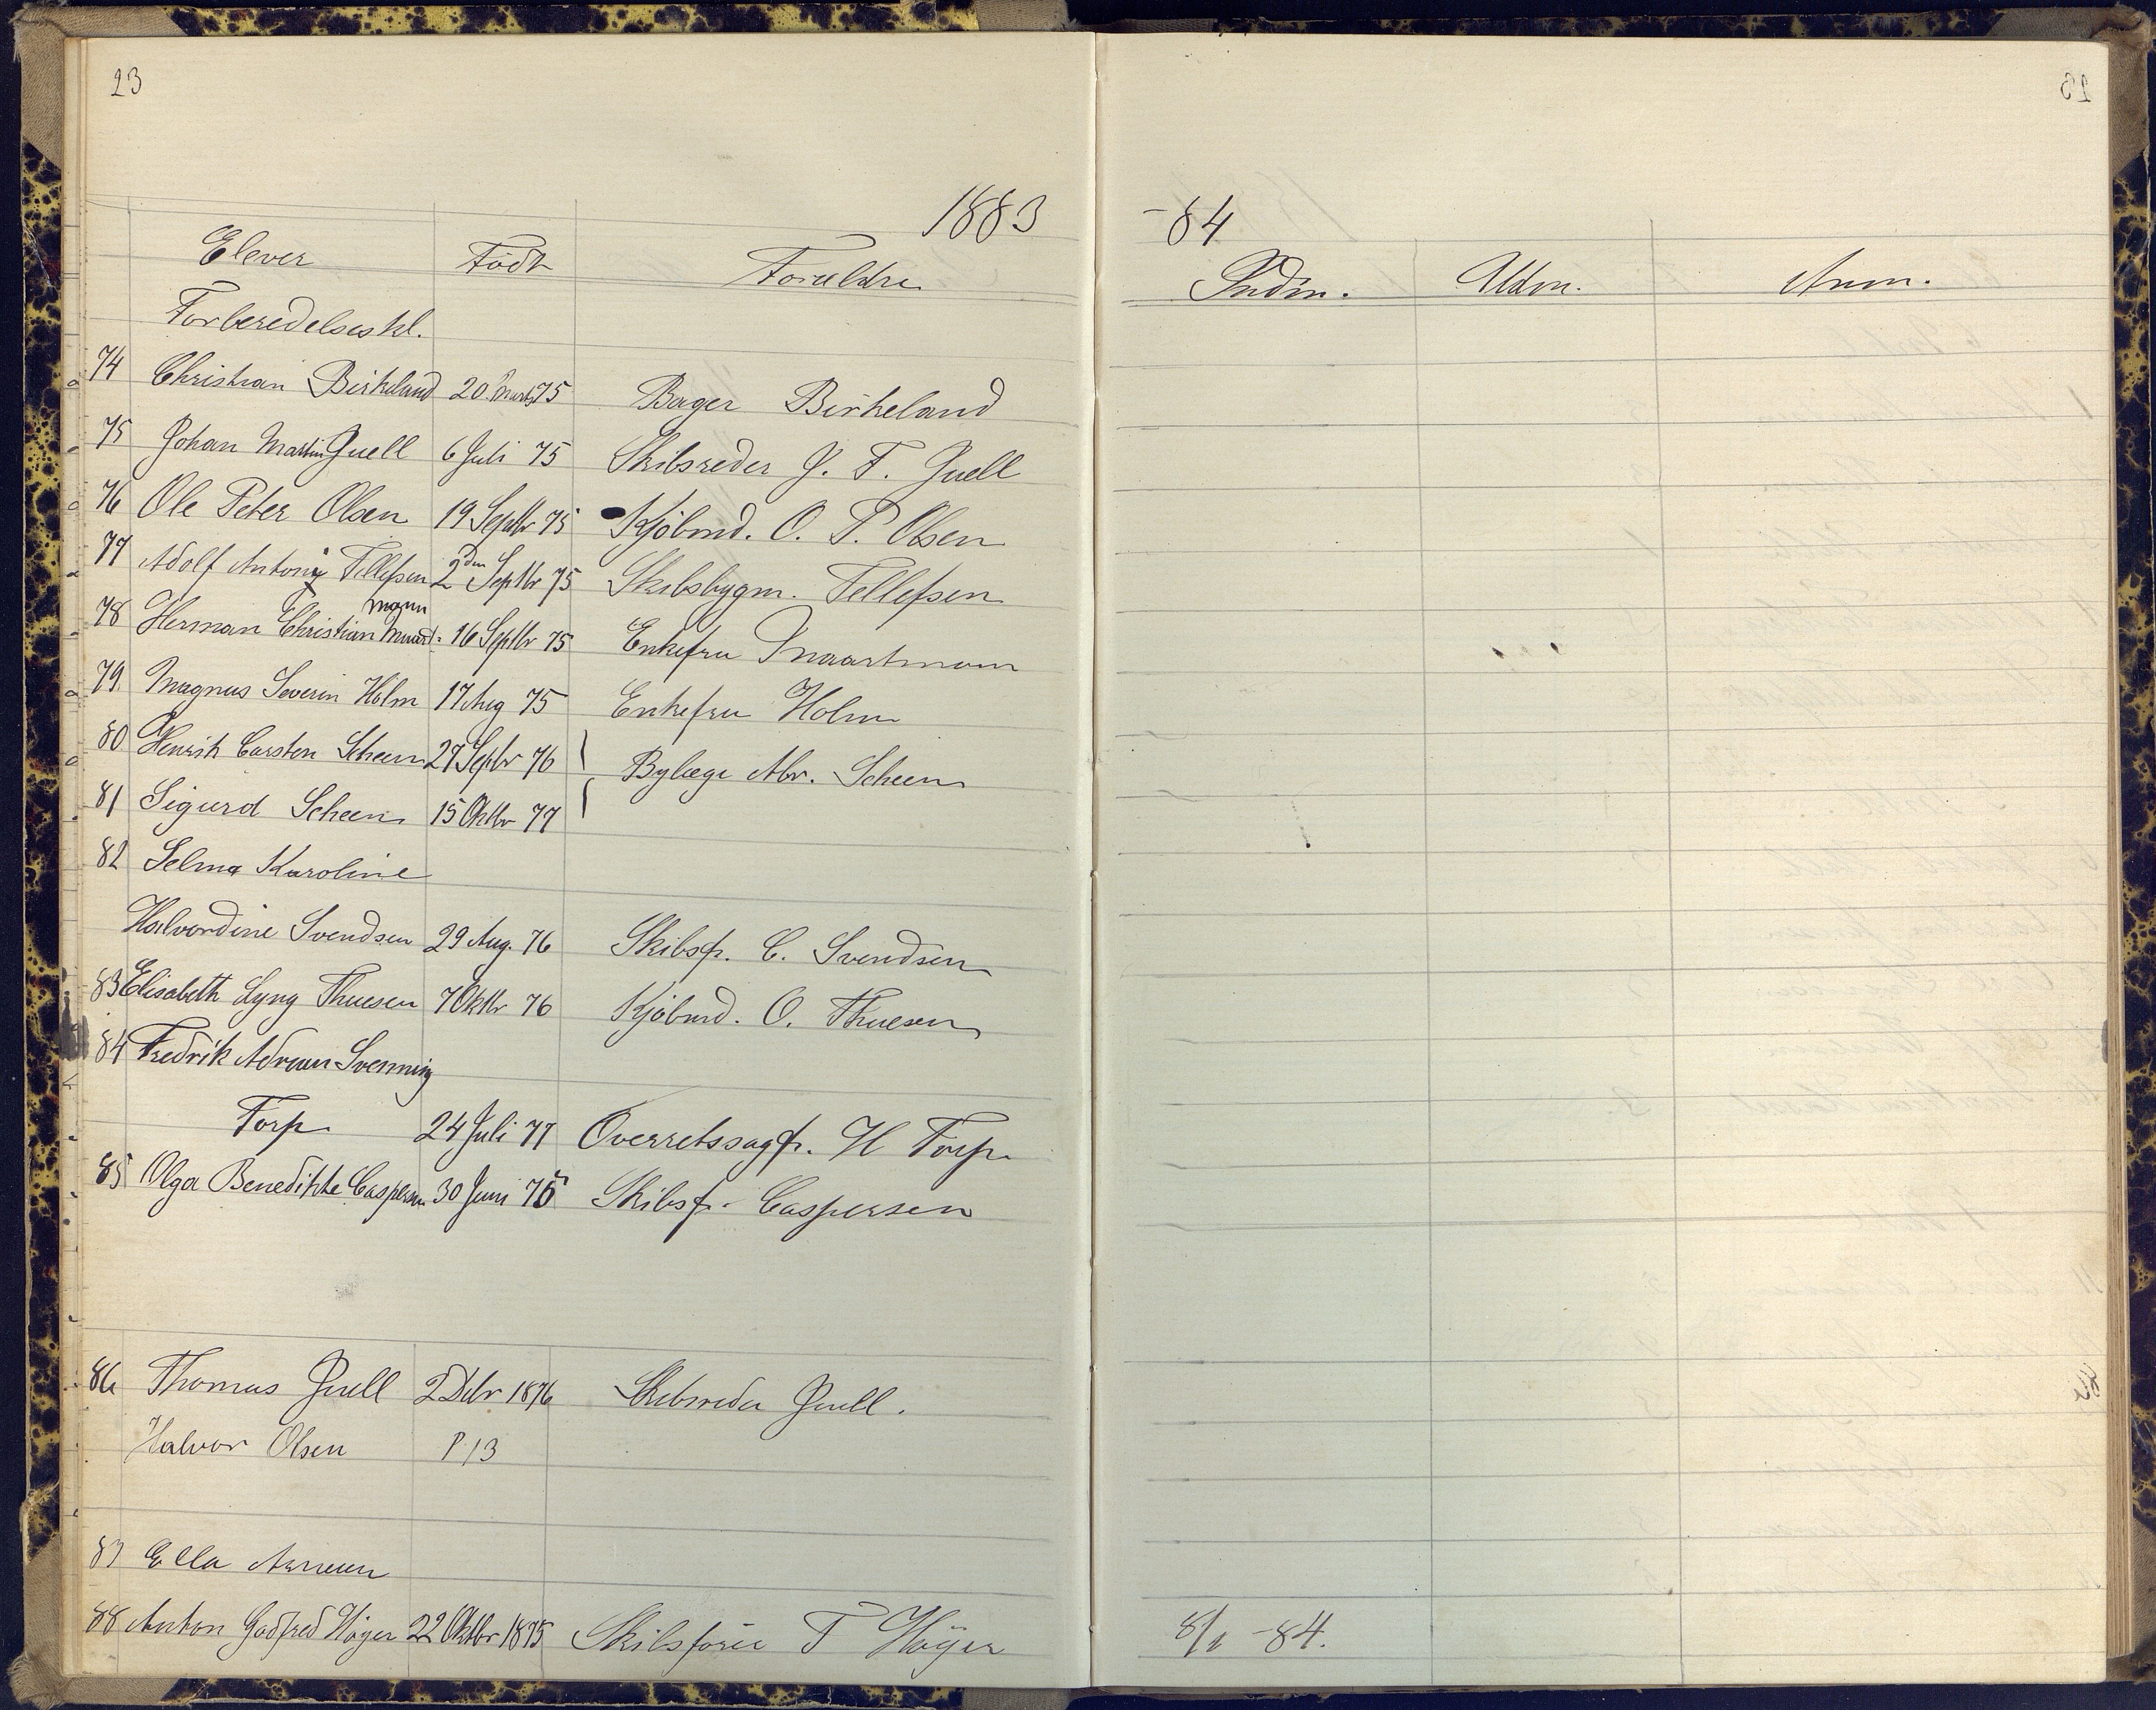 23
23
1883 -84
Elever Födt Forældre Indm. Udm. Anm.
Forberedelseskl.
74 Christian Birkeland 20. Marts 75 Bager Birkeland
75 Johan Martin Juell 6 Juli 75 Skibsreder J. F. Juell
76 Ole Peter Olsen 19 Septbr 75 Kjöbmd. O. P. Olsen
77 Adolf Antony Tellefsen 2den Septbr 75 Skibsbygm. Tellefsen
mann
78 Herman Christian 16 Septbr 75 Enkefru
79. Magnus Severin Holm 17 Aug 75 Enkefru Holm
80 Henrik Carsten Scheen 27 Septbr 76 Bylæge Abr. Scheen
81 Sigurd Scheen 15 Oktbr 77
82 Selma Karoline
Halvordine Svendsen 29 Aug. 76 Skibsf. C. Svendsen
83 Elisabeth Lyng Thuesen 7 Oktbr 76 Kjöbmd. O. Thuesen
84 Fredrik Adrian Svenning
Torp 24 Juli 77 Overretssagf. H Torp
85 Olga Benedikte Caspersen 30 Juni 75 Skibsf. Caspersen
86 Thomas Juell 2 Dcbr 1876 Skibsreder Juell.
Halvor Olsen P. 13
87 Ella
88 Anton Godfred Höyer 22 Oktbr 1875 Skibsförer T Höyer 8/1 -84.